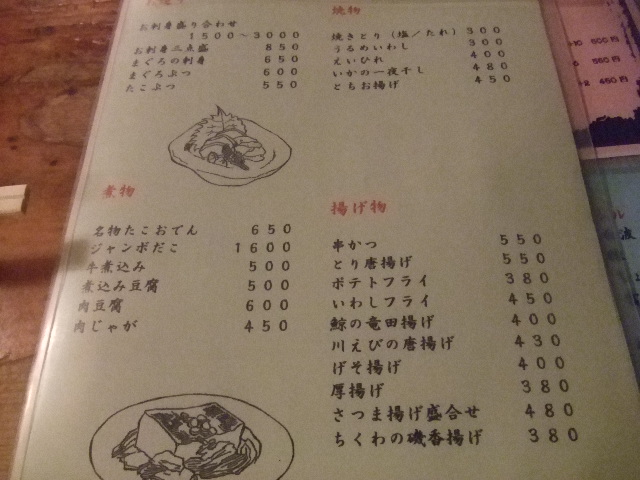 お刺身盛り合わせ
１５００～３０００
お刺身三点盛 ８５０
まぐろの刺身 ６５０
まぐろぶつ ６００
たこぶつ ５５０
焼物
焼きとり（塩／たれ） ３００
うるめいわし ３００
えいひれ ４００
いかの一夜干し ４８０
とちお揚げ ４５０
煮物
名物たこおでん ６５０
ジャンボだこ １６００
牛煮込み ５００
煮込み豆腐 ５００
肉豆腐 ６００
肉じゃが ４５０
揚げ物
串かつ ５５０
とり唐揚げ ５５０
ポテトフライ ３８０
いわしフライ ４５０
鯨の竜田揚げ ４００
川えびの唐揚げ ４３０
げそ揚げ ４００
厚揚げ ３８０
さつま揚げ盛合せ ４８０
ちくわの磯香揚げ ３８０
600円
450円